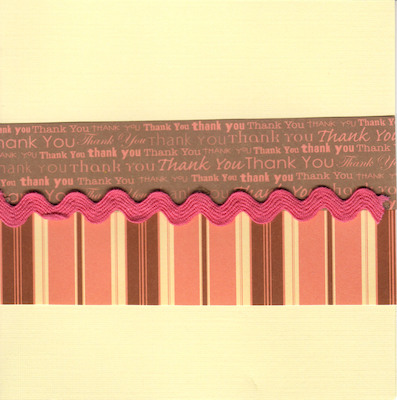 thank you Thank You THANK YOU Thank You thank you Thank You THANK YOU Thank You thank you Thank
Thank You Thank You THANK YOU Thank You Thank You
Thank You THANK YOU thank you Thank You Thank You THANK YOU Thank You thank you Thank You
Thank You Thank You Thank You Thank You Thank You